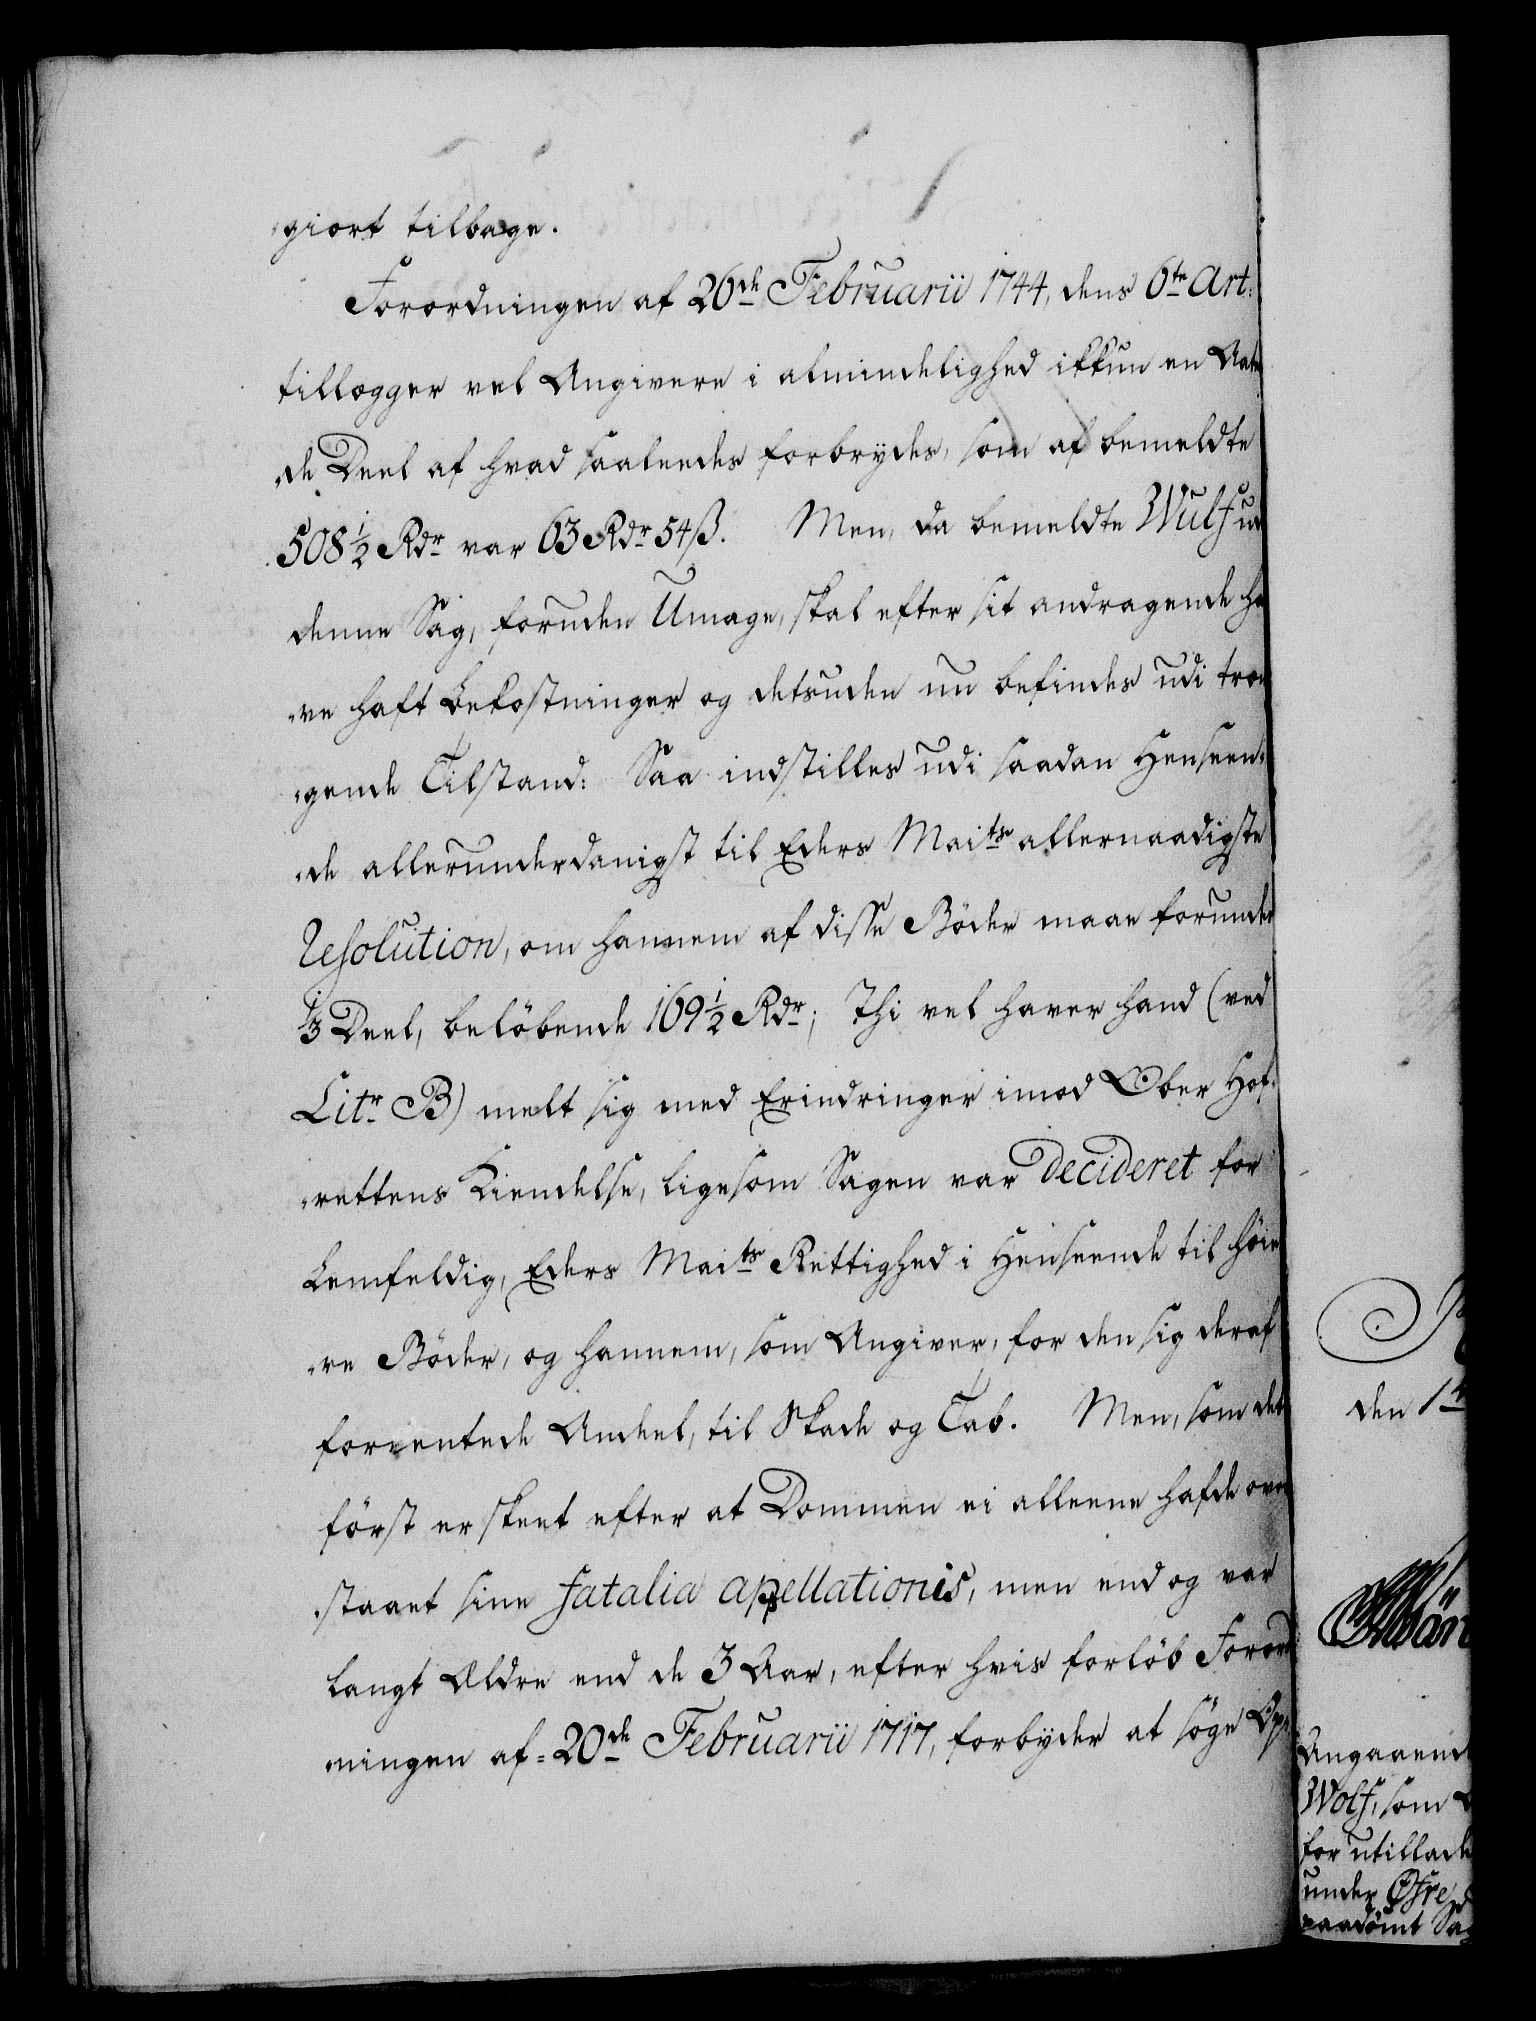 giort tilbage.
Forordningen af 26de Februarii 1744, dens 6te Art:
tillægger vel Angivere i almindelighed ikkun en Aat
de Deel af hvad saaleedes forbrydes, som af bemeldte
508 1/2 Rdr var 63 Rdr 54 ß. Men, da bemeldte Wulf ud
denne Sag, foruden Umage, skal efter sit andragende ha
ve haft Bekostninger og detsuden nu befindes udi træn
gende Tilstand: Saa indstilles udi saadan Henseen,
de allerunderdanigst til Eders Maits allernaadigste
Resolution, om hannem af disse Böder maae forundes
1/3 Deel, belöbende 169 1/2 Rdr; Thi vel haver hand (ved
Litr B) melt sig med Erindringer imod Ober Hof,
rettens Kiendelse, ligesom Sagen var decideret for
Lemfeldig, Eders Maits Rettighed i Henseende til höie
re Böder, og hannem, som Angiver, for den sig deraf
forventede Andeel, til Skade og Tab. Men, som det
först er skeet efter at Dommen ei alleene hafde over
staaet sine fatalia apellationis, men end og var
langt Ældre end de 3 Aar, efter hvis forlöb Forord
ningen af 20de Februarii 1717, forbyder at söge Op,
den 1
Angaaend
Wolf, som
for utillad
under Öfre
paadömt Sag